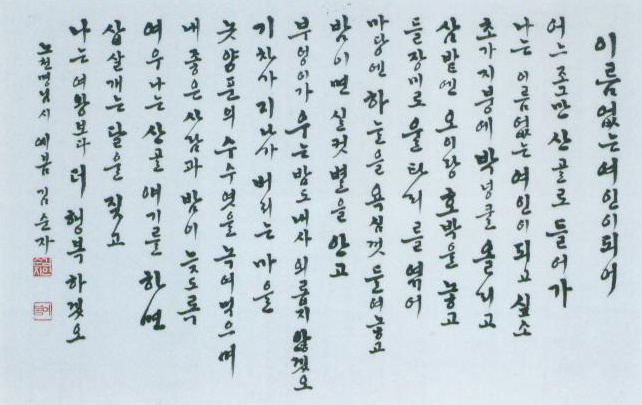 이름 없는 여인이 되어
어느 조그만 산골로 들어가
나는 이름 없는 여인이 되고 싶소
초가 지붕에 박 넝쿨 올리고
삼밭엔 오이랑 호박을 놓고
들장미로 울타리를 엮어
마당엔 하늘을 욕심껏 들여놓고
밤이면 실컷 별을 안고
부엉이가 우는 밤도 내사 외롭지 않겠오
기차가 지나가 버리는 마을
놋양푼의 수수엿을 녹여 먹으며
내 좋은 사람과 밤이 늦도록
여우 나는 산골 얘기를 하면
삽살개는 달을 짖고
나는 여왕보다 더 행복하겠오
노천명님 시 예봄 김순자